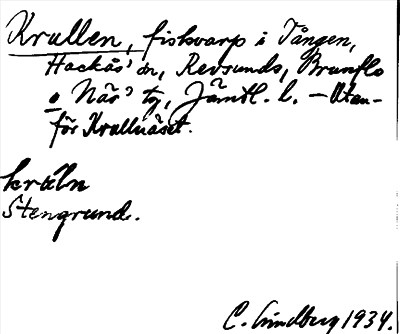 Krullen, fiskvarp i Tången,
Hackås' sn, Revsunds, Brunflo
o Näs' tg, Jämtl. l. – Utan-
för Krullnäset.
kräln
Stengrund.
C. Lindberg 1934.